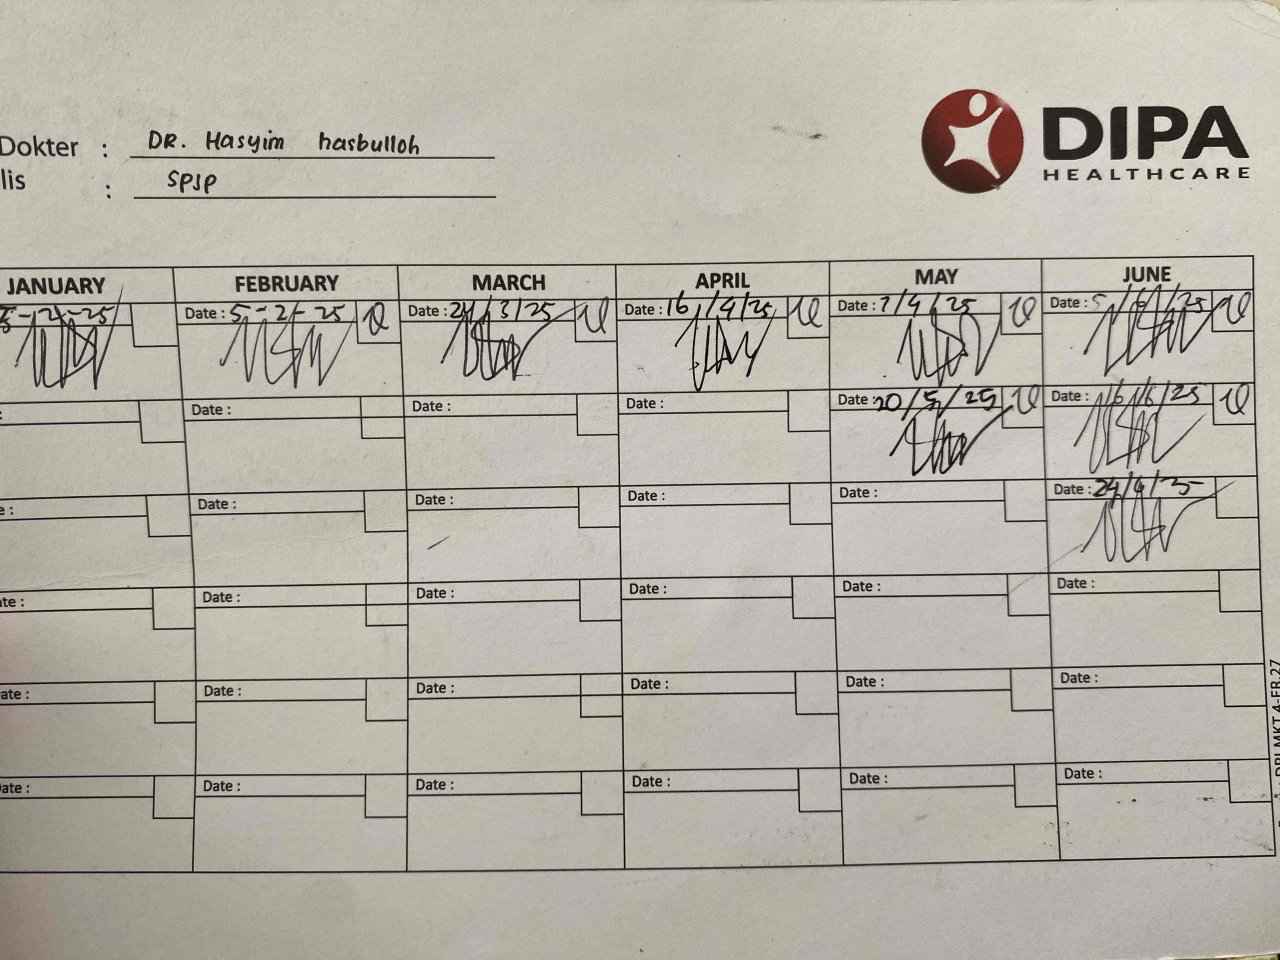 Dokter : DR. Hasyim hasbulloh
lis : SPJP
DIPA
HEALTHCARE
JANUARY FEBRUARY MARCH APRIL MAY JUNE
Date : 5-2-25 Date : 24/3/25 Date : 16/4/25 Date : 7/4/25 Date : 5/6/25
Date : Date : Date : Date : 20/5/25 Date : 16/6/25
e : Date : Date : Date : Date : Date : 24/6/25
te : Date : Date : Date : Date : Date :
ate : Date : Date : Date : Date : Date :
ate : Date : Date : Date : Date : Date :